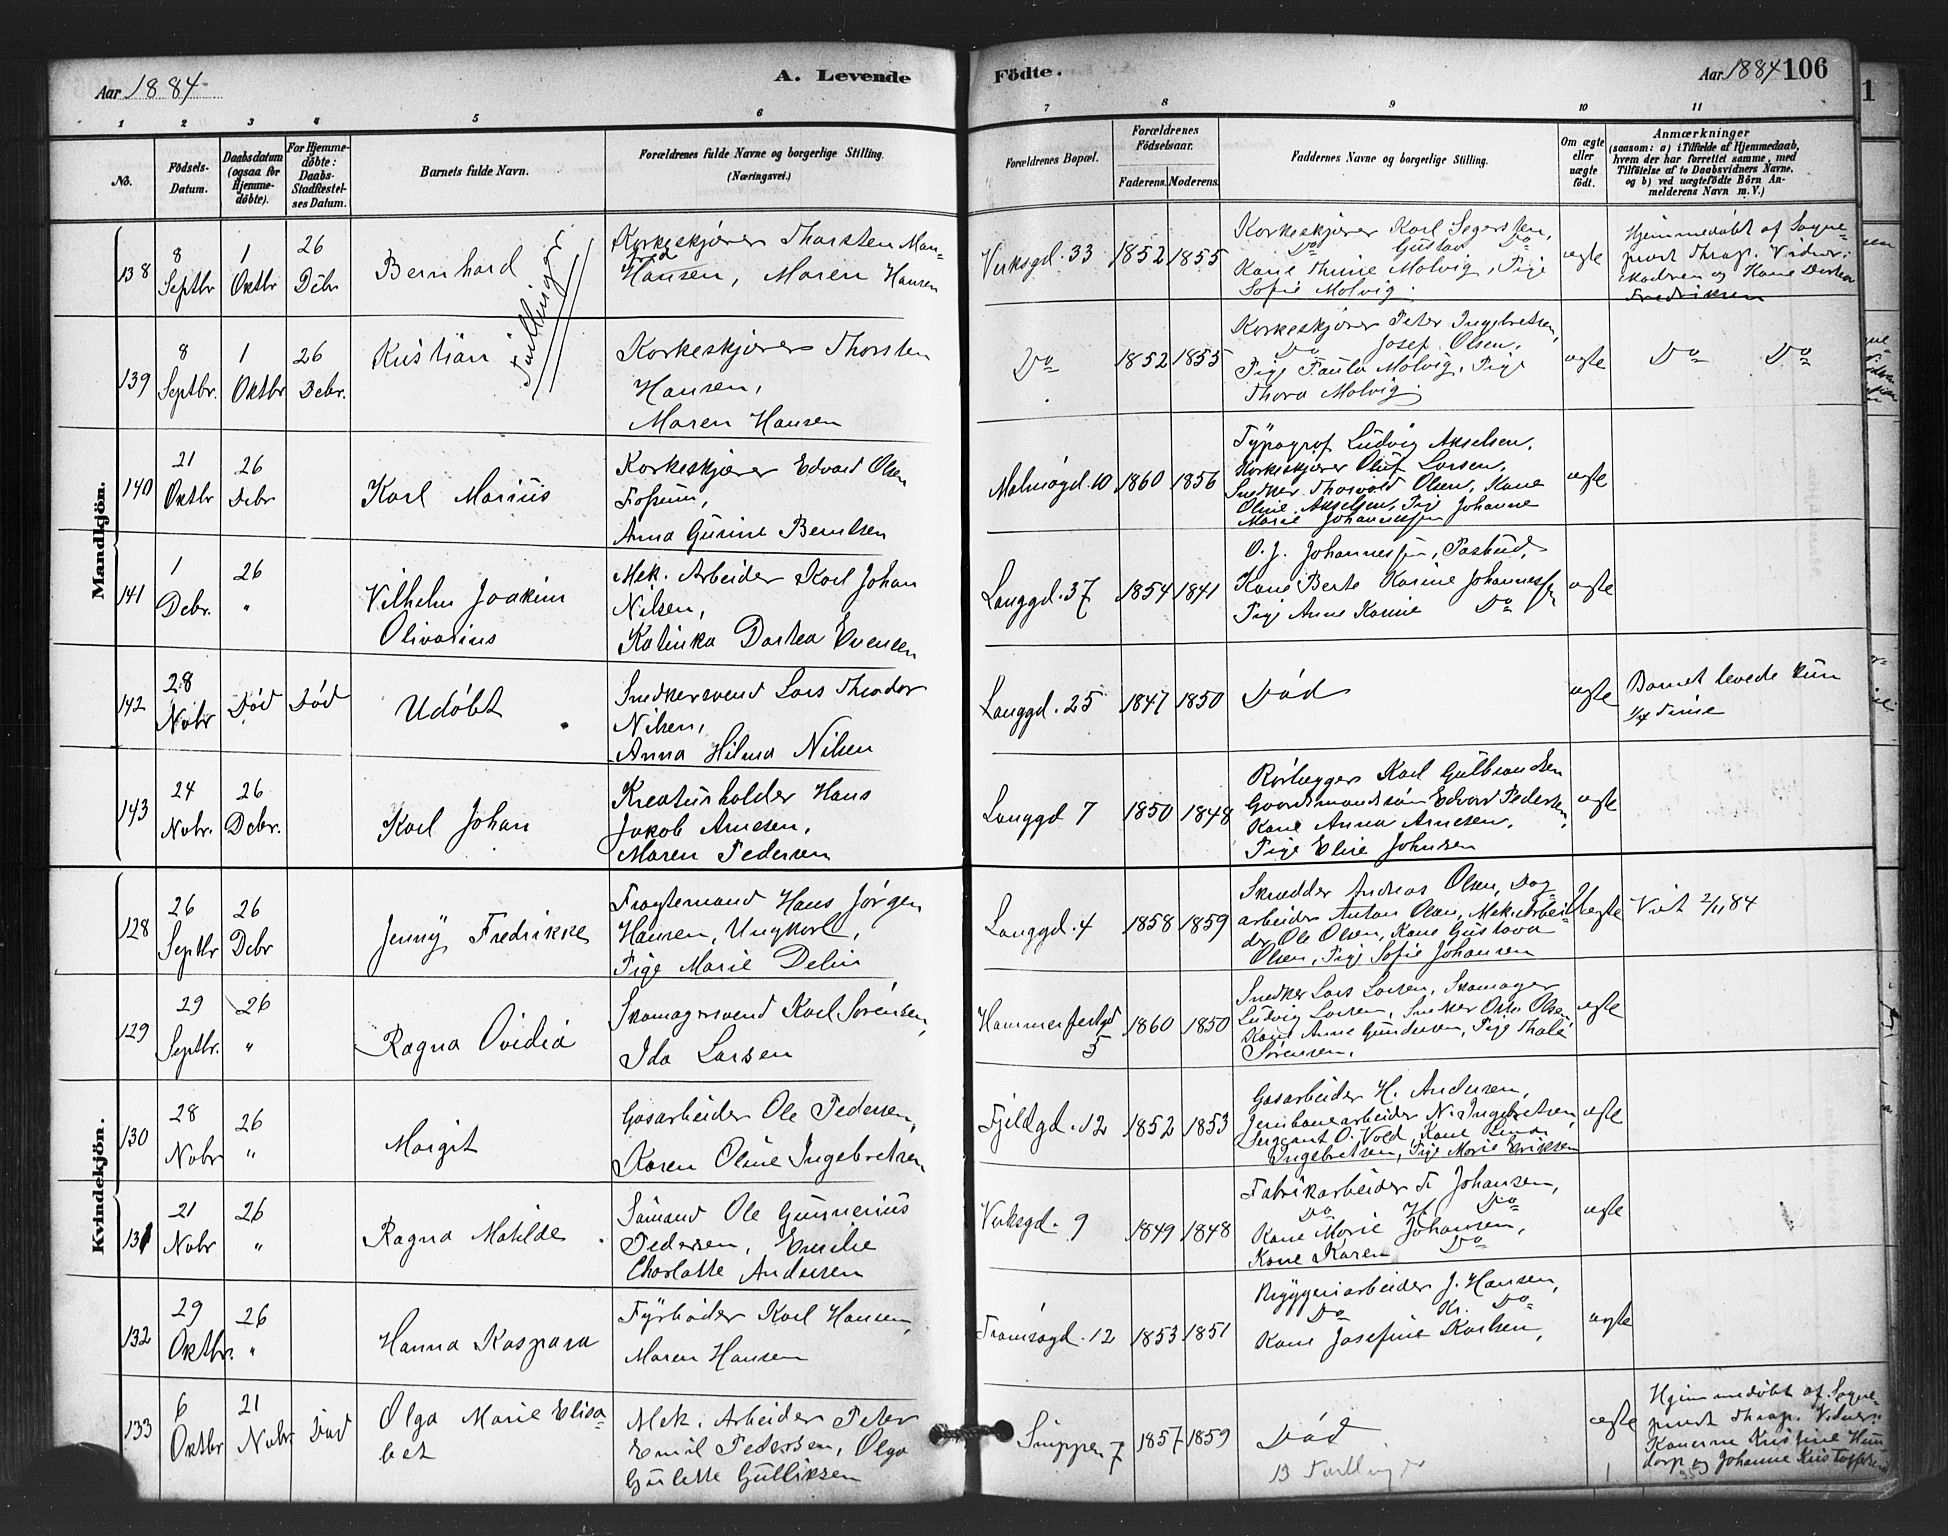 Aar 1884
A. Levende
1 2 3 4 5 6
No.
Födsels-
Datum.
Daabsdatum
(ogsaa for
Hjemme-
døbte).
For Hjemme-
døbte:
Daabs-
Stadfæstel-
ses Datum.
Barnets fulde Navn.
Forældrenes fulde Navne og borgerlige Stilling.
(Næringsvei.)
Mandkjön.
138
8
Septbr
1
Oktbr
26
Dcbr
Bernhard
Tvillinger
Korkeskjærer Thorsten
Hansen, Maren Hansen
139
8
Septbr.
1
Oktbr
26
Decbr.
Kristian
Korkeskjærer Thorsten
Hansen,
Maren Hansen
140
21
Oktbr
26
Dcbr
Karl Marius
Korkeskjærer Edvard Olsen
Fossum,
Anna Gurine Berntsen
141
1
Dcbr.
26
"
Vilhelm Joakim
Olivarius
Mek. Arbeider Karl Johan
Nilsen,
Katinka Dortea Evensen
142
28
Nvbr
Död
Död
Udøbt
Snedkersvend Lars Theodor
Nilsen,
Anna Hilma Nilsen
143
24
Nvbr.
26
Dcbr.
Karl Johan
Kreaturholder Hans
Jakob Arnesen,
Maren Pedersen
Kvindekjön.
128
26
Septbr
26
Dcbr
Jenny Fredrikke
Fragtemand Hans Jørgen
Hansen, Ungkarl,
Pige Marie Delin
129
29
Septbr.
26
"
Ragna Ovidia
Skomagersvend Karl Sørensen,
Ida Larsen
130
28
Nvbr
26
"
Margit
Gasarbeider Ole Pedersen,
Karen Oline Ingebretsen
131
21
Nvbr
26
"
Ragna Matilde
Sømand Ole Gunnerius
Pedersen, Emilie
Charlotte Andersen
132
29
Oktbr.
26
"
Hanna Kaspara
Fyrbøder Karl Hansen,
Maren Hansen
133
6
Oktbr
21
Nvbr.
Död
Olga Marie Elisa-
bet
Mek. Arbeider Peter
Emil Pedersen, Olga
Gulette Gulliksen
Födte.
Aar 1884 106
7 8 9 10 11
Forældrenes Bopæl.
Forældrenes
Födselsaar.
Faderens. Moderens.
Faddernes Navne og borgerlige Stilling.
Om ægte
eller
uægte
født.
Anmærkninger
(saasom: a) i Tilfælde af Hjemmedaab,
hvem der har forrettet samme, med
Tilföielse af to Daabsvidners Navne,
og b) ved uægtefödte Börn An-
melderens Navn m. V.)
Verksgd. 33 1852 1855
Korkeskjærer Karl Segersten,
Do Gustav Do
Kone Thrine Molvig, Pige
Sofie Molvig.
ægte
Hjemmedøbt af Sogne-
prest Thrap. Vidner:
Madren og Kone Dortea
Fredriksen
Do 1852 1855
Korkeskjærer Peter Ingebretsen,
Do Josef Olsen,
Pige Paula Molvig, Pige
Thora Molvig
ægte
Do Do
Malmøgd. 10 1860 1856
Typograf Ludvig Akselsen,
Korkeskjærer Oluf Larsen,
Snedker Thorvald Olsen, Kone
Oline Akselsen, Pige Johanne
Marie Johannessen
ægte
Langgd. 37 1854 1841
O. J. Johannessen, Postbud,
Kone Berte Karine Johannessen
Pige Anne Karine Do
ægte
Langgd. 25 1847 1850
Död
ægte
Barnet levede kun
1/4 Time
Langgd 7 1850 1848
Rørlægger Karl Gulbrandsen
Gaardmandssøn Edvard Pedersen,
Kone Anna Arnesen,
Pige Elise Johnsen
ægte
Langgd. 4 1858 1859
Skrædder Andreas Olsen, Dag-
arbeider Anton Olsen, Mek. Arbei-
der Ole Olsen, Kone Gustava
Olsen, Pige Sofie Johansen
Uægte
Vist 2/11 84
Hammerfestgd
5
1860 1850
Snedker Lars Larsen, Skomager
Ludvig Larsen, Snedker Otto Olsen,
Kone Anne Gundersen, Pige Thale
Sørensen,
ægte
Fjeldgd. 12 1852 1853
Gasarbeider H. Andersen,
Jernbanearbeider N. Ingebretsen,
Sergeant O. Vold, Kone
Ingebretsen, Pige Marie Eriksen
ægte
Verksgd. 9 1849 1848
Fabrikarbeider F. Johansen,
Do H. Do
Kone Marie Johansen,
Kone Karen Do
ægte
Tromsøgd. 12 1853 1851
Bryggeriarbeider J. Hansen,
Do Kr. Do
Kone Josefine Karlsen,
ægte
Snippen 7 1857 1859
Död
ægte
Hjemmedøbt af Sogne-
prest Thrap. Vidner:
Konerne Kristine
og Johanne Kristoffersen